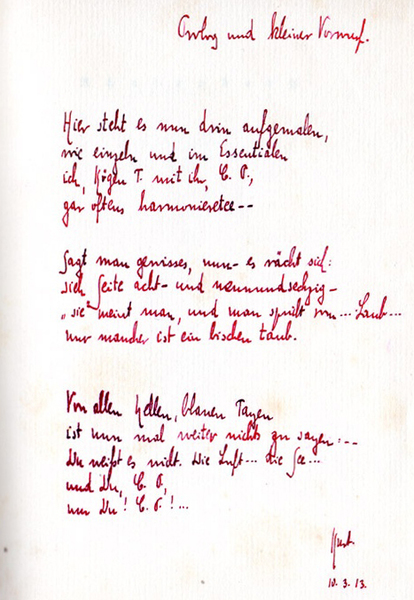 Prolog und kleiner Vorwurf.
Hier steht es nun drin aufgemalen,
wie einzeln und im Essentialen
ich, T. mit ihr, C. P.,
gar oftens harmonieretee --
Sagt man gewisses, nun - es rächt sich:
sieh Seite acht- und neunundsechzig -
„sie" meint man, und man spricht von ... Laub ...
nur mancher ist ein bischen taub.
Von allen hellen, blauen Tagen
ist nun mal weiter nichts zu sagen: --
Du weißt es nicht. Die Luft ... die See ...
und Du, C. P.,
nur Du! C. P.! ...
10. 3. 13.